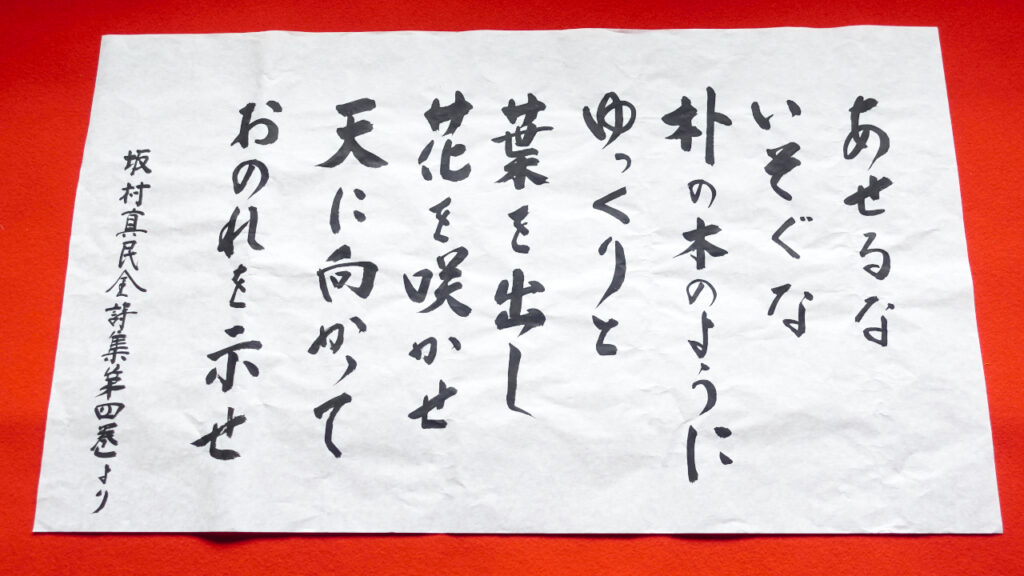 あせるな
いそぐな
朴の木のように
ゆっくりと
葉を出し
花を咲かせ
天に向かって
おのれを示せ
坂村真民全詩集第四巻より